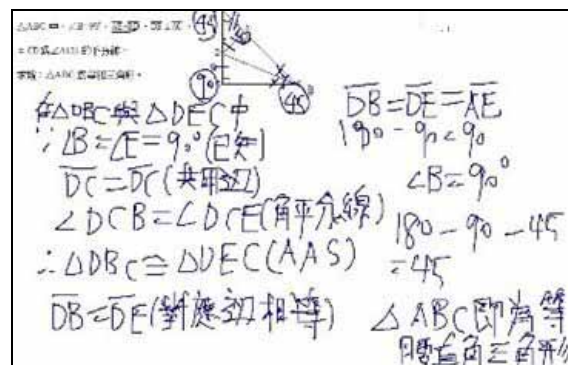 △ABC 中,∠B=90°,
CD 為∠ACB 的平分線。
求證:△ABC 為等腰三角形。
45
90
45
在△DBC與△DEC中
∵∠B=∠E=90°(已知)
DC=DC(共用邊)
∠DCB=∠DCE(角平分線)
∴△DBC≅△DEC(AAS)
DB=DE(對應邊相等)
DB=DE=AE
180-90=90
∠B=90°
180-90-45
=45
△ABC即為等
腰直角三角形